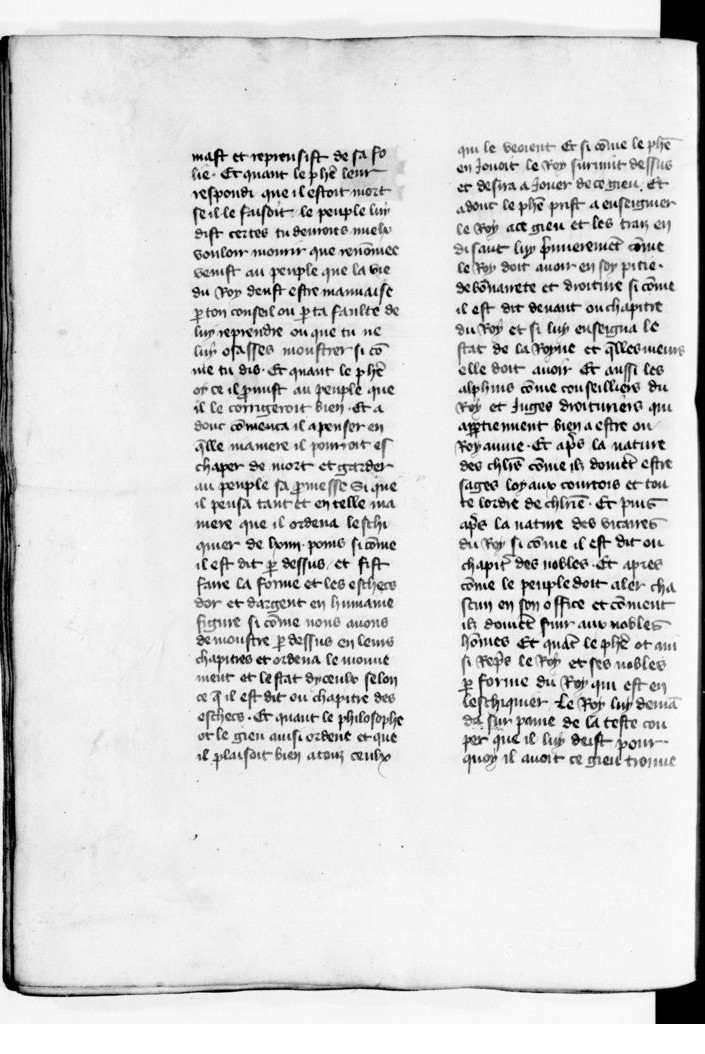 mast et reprensist de sa fo
lie · Et quant le phē leur
respondi que il estoit mort
se il le faisoit · le peuple luy
dist certes tu devrois mielx
vouloir mourir que renōmee
venist au peuple que la vie
du Roy deust estre mauvaise
p̲ ton conseil ou p̲ ta faulte de
luy reprendre ou que tu ne
luy osasses moustrer si cō
me tu dis · Et quant le phē
oy ce il p̲mist au peuple que
il le corrigeroit bien · Et a
donc cōmenca il a penser en
q̄lle maniere il pourroit es
chaper de mort et garder
au peuple sa p̲messe Si que
il pensa tant et en telle ma
niere que il ordena leschi
quier de lxiiii · poins si cōme
il est dit p̲ dessus / et fist
faire la forme et les eschecs
dor et dargent en humaine
figure si cōme nous avons
demoustre p̲ dessus en leurs
chapitres et ordena le mouve
ment et lestat dyceulx selon
ce q̄ il est dit ou chapitre des
eschecs · Et quant le philosophe
ot le gieu ainsi ordene et que
il plaisoit bien a touz ceulx
qui le veoient Et si cōme le phē
en Jouoit le Roy survint dessus
et desira a Jouer de ce gieu · Et
adonc le phē prist a enseignier
le Roy a ce gieu et les traiz en
disant luy p̲mierement cōme
le Roy doit avoir en soy pitie ·
debōnairete et droiture si cōme
il est dit devant ou chapitre
du Roy et si luy enseigna le
stat de la Royne et q̄lles meurs
elle doit avoir Et aussi les
alphins cōme conseilliers du
Roy et Juges droituriers qui
app̲tiennent bien a estre ou
Royaume · Et ap̄s la nature
des chl̄rs cōme ilz doivēt estre
sages loyaux courtois et tou
te lordre de chl̄rie · Et puis
ap̄s la nature des vicaires
du Roy si cōme il est dit ou
chapit̄ des nobles · Et apres
cōme le peuple doit aler cha
scun en son office et cōment
ilz doivēt s̄vir aux nobles
hōmes Et quāt le phē ot ain
si rep̄s le Roy et ses nobles
p̲ forme du Roy qui est en
leschiquier · Le Roy luy demā
da sur paine de la teste cou
per que il luy deist pour ·
quoy il avoit ce gieu trouve